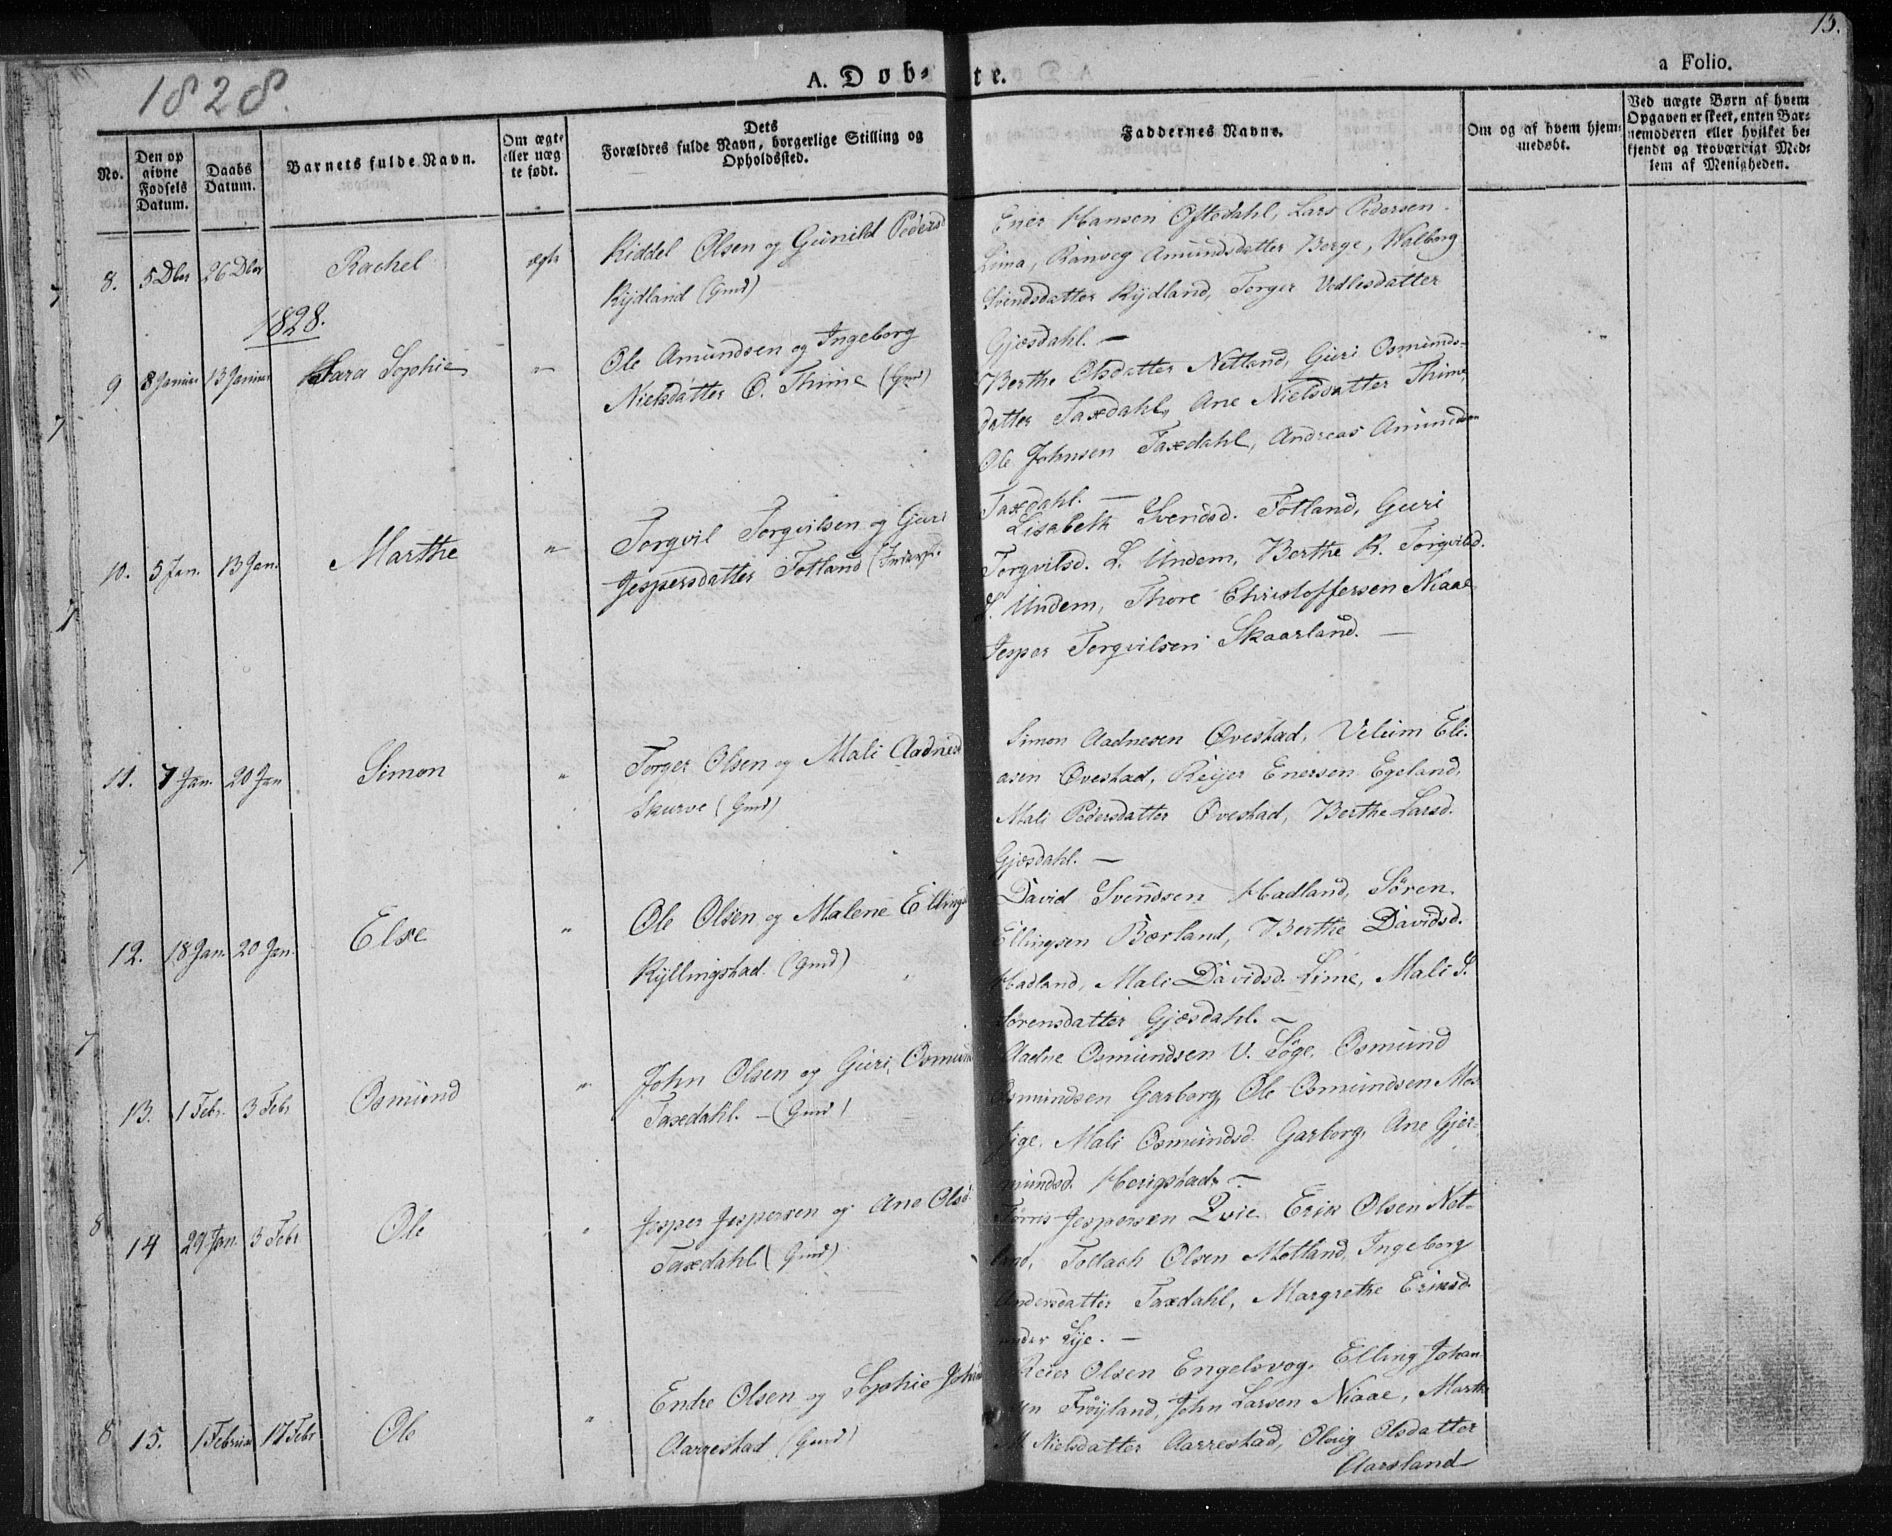 13.
1828.
A. Døb-te.
a Folio.
No.
Den opgivne Fødsels Datum.
Daabs Datum.
Barnets fulde Navn.
Om ægte eller uægte født.
Dets Forældres fulde Navn, borgerlige Stilling og Opholdssted.
Faddernes Navne.
Om og af hvem hjemmedøbt.
Ved uægte Børn af hvem Opgaven er skeet, enten Barnemoderen eller hvilket bekjendt og troværdigt Medlem af Menigheden.
8. 5 Dbr 26 Dbr Rachel ægte
Riddel Olsen og Gunild Pedersd
Rydland (Gmd)
Ener Hansen Oftedahl, Lars Pedersen
Lima, Ranveg Amundsdatter Berge, Walborg
Svendsdatter Rydland, Torger Vedlesdatter
Gjæsdahl. —
1828.
9 8 Januar 13 Januar Sara Sophie "
Ole Amundsen og Ingeborg
Nielsdatter O. Thime (Gmd)
Berthe Olsdatter Netland, Guri Osmunds-
datter Taxdahl, Ane Nielsdatter Thime,
Ole Johnsen Taxdahl, Andreas Amundsen
Taxdahl. —
10. 5 Jan. 13 Jan. Marthe "
Torgvil Torgvilsen og Guri
Jespersdatter Fotland (Inderst.
Lisabeth Svendsd. Fotland, Guri
Torgvilsd. L. Undem, Berthe K. Torgvilsd.
L. Undem, Thore Christoffersen Niaae
Jesper Torgvilsen Skaarland. —
11. 7 Jan. 20 Jan Simon "
Torger Olsen og Mali Aadnesd
Skurve (Gmd)
Simon Aadnesen Øvestad, Velum Eli-
asen Øvestad, Reyer Enersen Egeland,
Mali Pedersdatter Øvestad, Berthe Larsd.
Gjæsdahl. —
12. 18 Jan. 20 Jan. Else "
Ole Olsen og Malene Ellings
Kyllingstad. (Gmd)
David Svendsen Hadland, Sören
Ellingsen Bærland, Berthe Davidsd.
Hadland, Mali Davidsd. Lime, Mali S.
Sörensdatter Gjæsdahl. —
13. 1 Febr. 3 Febr Osmund "
John Olsen og Guri Osmund
Taxedahl. — (Gmd)
Aadne Osmundsen V. Søge, Osmund
Osmundsen Garborg, Ole Osmundsen Mos-
sige, Mali Osmundsd. Garborg, Ane Gjer-
mundsd. Herigstad. —
8 14 29 Jan. 3 Febr Ole "
Jesper Jespersen og Ane Olsd.
Taxedahl (Gmd)
Tørris Jespersen Qvie, Erik Olsen Net-
land, Tollach Olsen Motland, Ingeborg
Andersdatter Taxdahl, Margrethe Eriksd.
under Lye. —
8 15. 1 Februar 17 Febr Ole "
Endre Olsen og Sophie Johan
Aarrestad (Gmd)
Reier Olsen Engelsvog, Elling Johan-
sen Frøyland, John Larsen Niaae, Marthe
M. Nielsdatter Aarrestad, Olvig Olsdatter
Aarsland